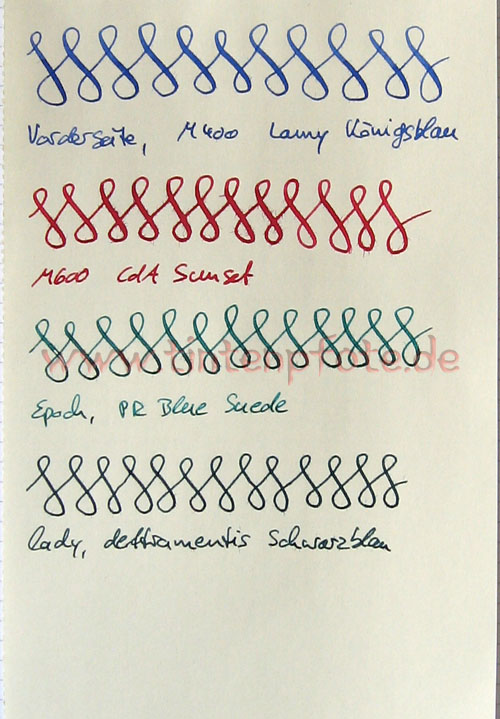 Vorderseite, M400 Lamy Königsblau
M600 CdA Sunset
www.tintenpfote.de
Epoch, PR Blue Suede
Lady, deAtramentis Schwarzblau